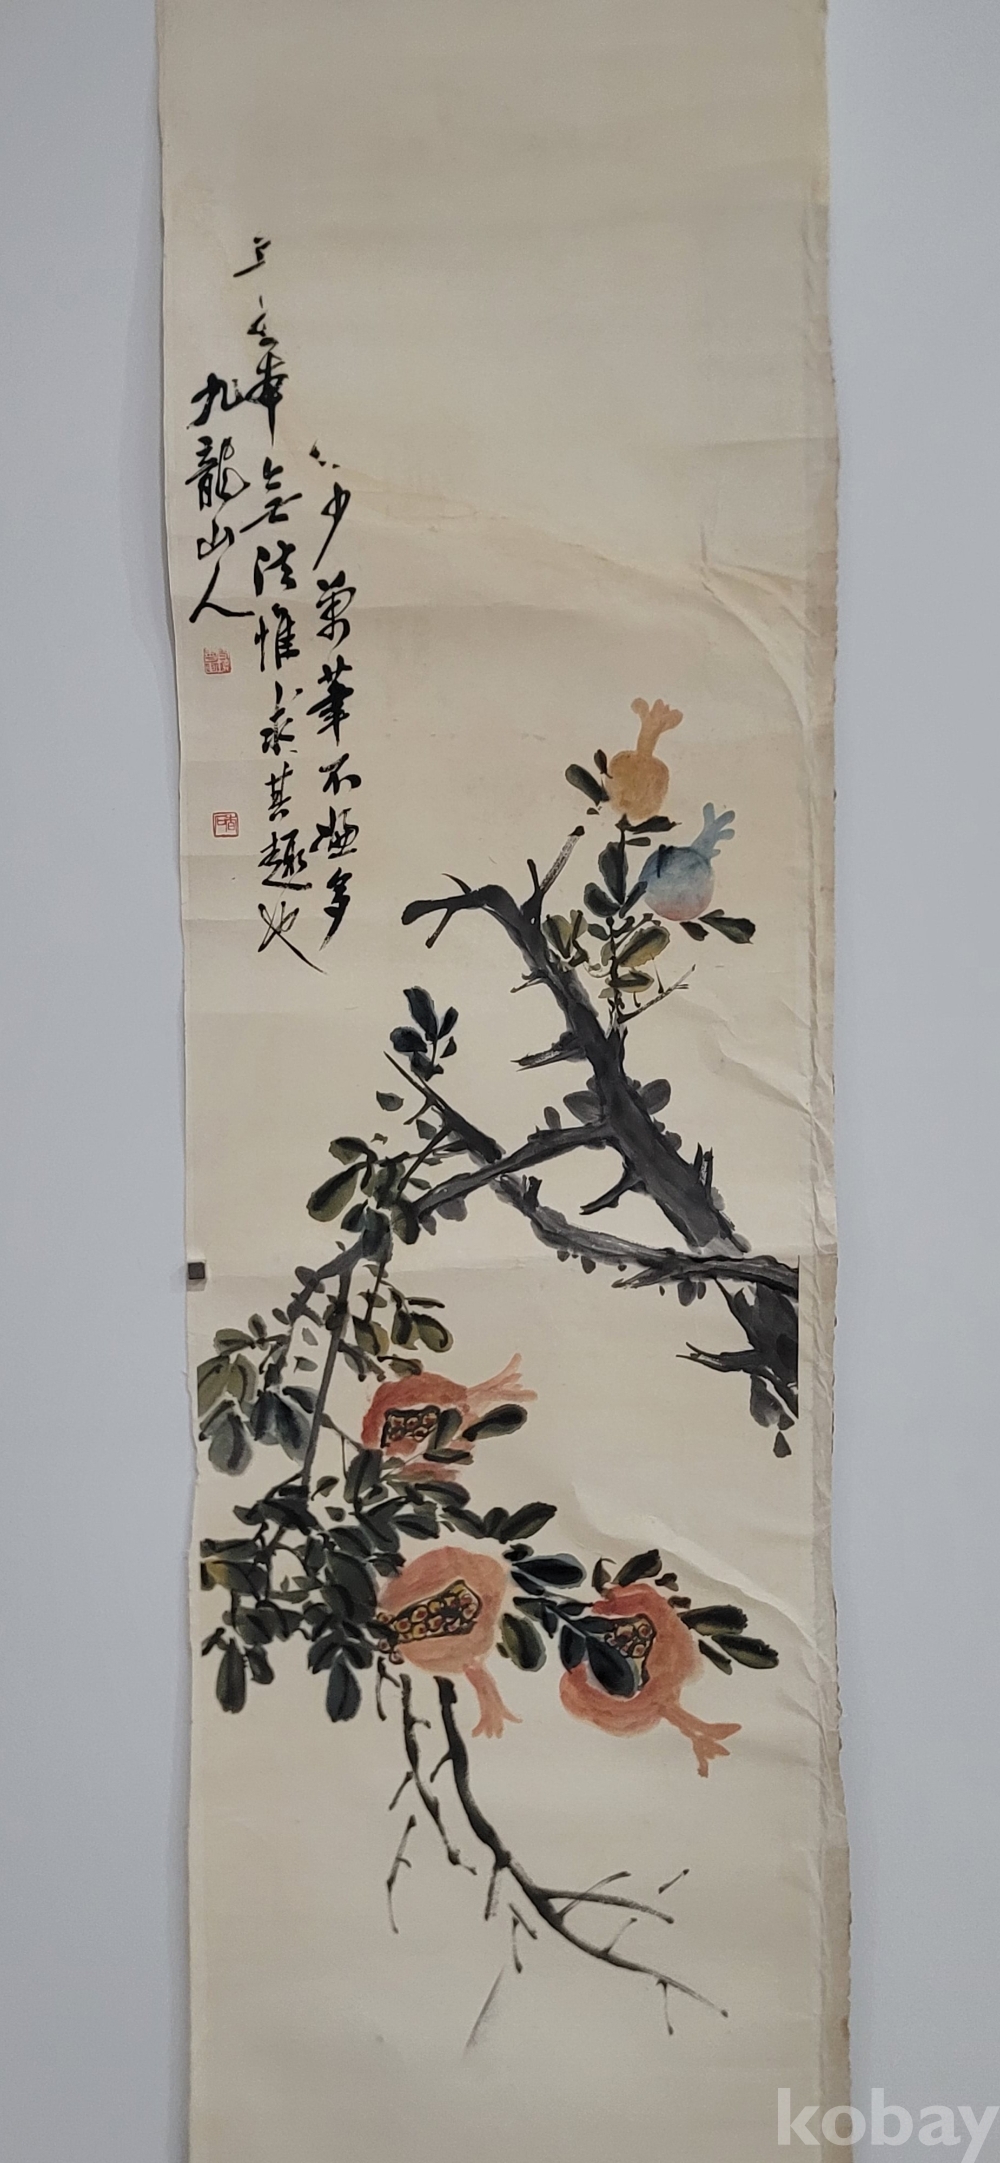 少萬筆不嫌多
無法惟求其趣也
九龍山人
kobay